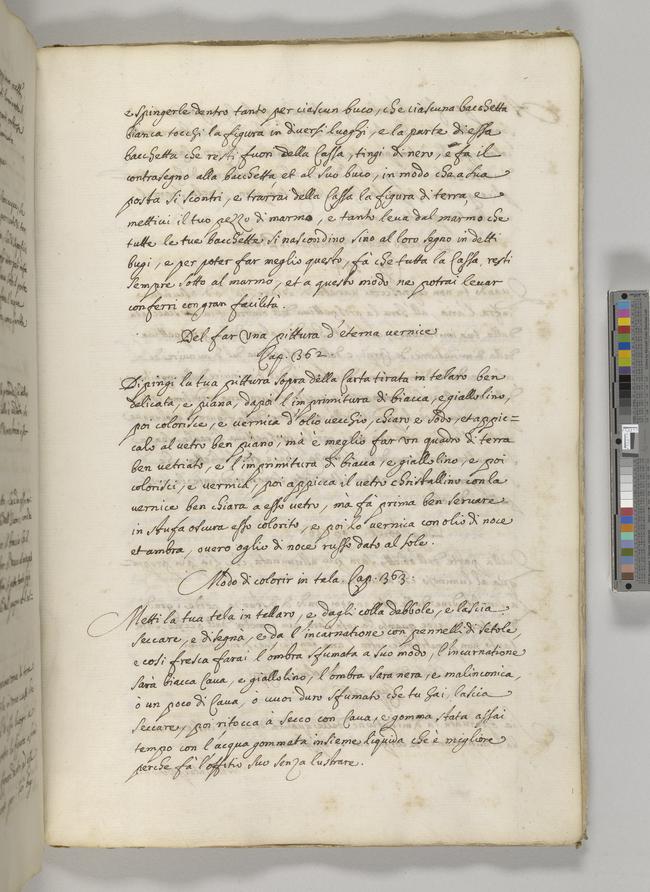 e spingerle dentro tanto per ciascun buco, che ciascuna bacchetta
bianca tocchi la figura in diversi luoghi, e la parte di essa
bacchetta che resti fuori della Cassa, tingi di nero, e fà il
contrasegno alla bacchetta, et al suo buco, in modo che a sua
posta si scontri, e trarrai della Cassa la figura di terra, e
mettivi il tuo pezzo di marmo, e tanto leva dal marmo che
tutte le tue bacchette si nascondino sino al loro segno in detti
bugi, e per poter far meglio questo, fà che tutta la Cassa resti
sempre sotto al marmo, et a questo modo ne potrai levar
con ferri con gran facilità.
Del far Una pittura d'eterna vernice
Cap. 362.
Dipingi la tua pittura sopra della Carta tirata in telaro ben
delicata, e piana, dapoi l'imprimitura di biacca, e giallolino,
poi colorisce, e vernica d'olio vecchio, chiaro e sodo, et appic=
calo al vetro ben piano, mà è meglio far un quadro di terra
ben vetriato, e l'imprimitura di biacca, e giallolino, e poi
colorisci, e vernica, poi appicca il vetro christallino con la
vernice ben chiara a esso vetro, mà fà prima ben seccare
in stufa oscura esso colorito, e poi lo vernica con olio di noce
et ambra, overo oglio di noce russo dato al sole.
Modo di colorir in tela. Cap. 363:
Metti la tua tela in tellaro, e dagli colla debbole, e lascia
seccare, e disegna, e da l'incarnatione con pennelli di setole,
e così fresca farai l'ombra sfumata a suo modo, l'incarnatione
sarà biacca Caca, e giallolino, l'ombra sara nera, e malinconica,
ò un poco di Caca, ò vuoi duro sfumato che tu hai, lascia
seccare, poi ritocca à secco con Caca, e gomma stata assai
tempo con l'acqua gommata insieme liquida che è migliore
perche fà l'offitio suo senza lustrare.